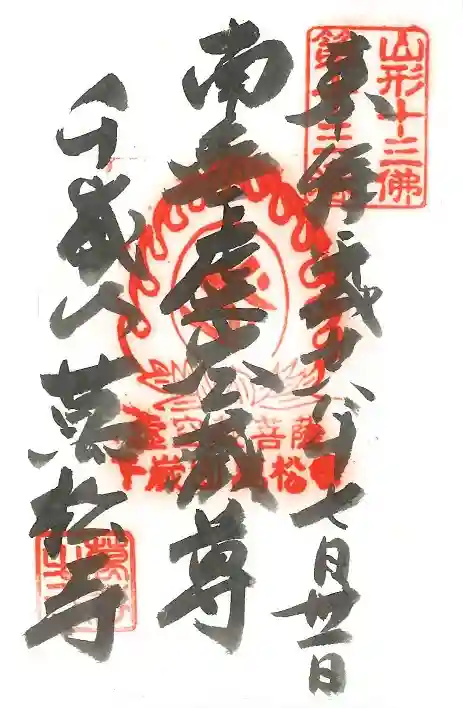 山形十三佛
第十三番
奉拝
七月卅一日
南無虚空蔵尊
虚空蔵菩薩
千歳山萬松寺
千歳山 萬松寺